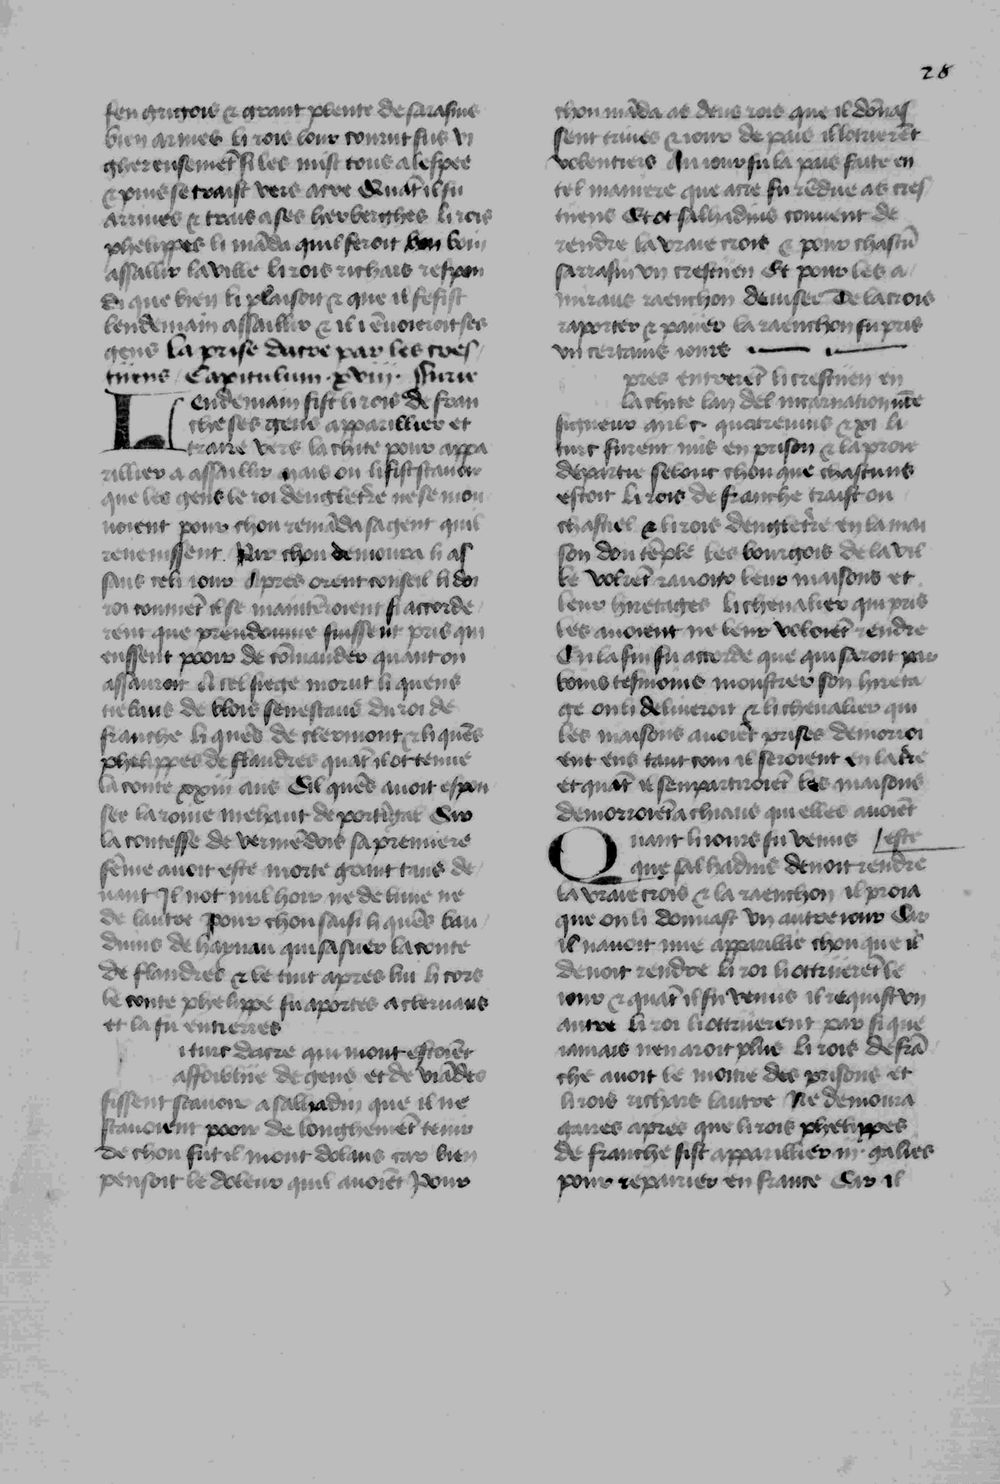 28
feu grigois & grant plente de sarasins
bien armes li rois lour courut sus vi
ghereusemēt si les mist tous a lespee
& puis se traist vers acre Quāt il fu
arrives & trais a ses herberghes li rois
phelippes li māda quil feroit bon
assallir la ville li rois richars respon
di que bien li plaisoit & que il fesist
lendemain assaillir & il i ēvoieroit ses
gens La prise dacre par les cres
tiiens Capitulum xviij
Lendemain fist li rois de fran
che ses gens apparillier et
traire vers la chite pour appa
rillier a assaillir mais on li fist scavoir
que les gens le roi dengletere ne se mou
voient pour chou remāda sa gent quil
revenissent Par chou demoura li as
saus celi jour Apres orent conseil li doi
roi commēt il se maintēroient si accorde
rent que preudomme fuissent pris qui
eussent pooir de cōmander quant on
assauroit A cel siege morut li quens
tiebaus de blois senescaus du roi de
franche li quēs de clermont & li quēs
phelippes de flandres quāt il ot tenue
la conte xxiiii ans Cil quēs avoit espou
see la roine mehaut de portigāt Car
la contesse de vermēdois sa premiere
fēme avoit este morte grant tans de
vant Il not nul hoir ne de lune ne
de lautre Pour chou saisi li quēs bau
duins de haynau qui sa suer la conte
de flandres & le tint apres lui li cors
le conte phelippe fu aportes a clervaus
et la fu entieries
i turc dacre qui mout estoiēt
affoibliie de gens et de viādes
fissent scavoir a salhadin que il ne
scavoient pooir de longhemēt tenir
De chou fut il mout dolans car bien
pensoit le doleur quil avoiēt Pour
chou māda as deus rois que il dōnas
sent triues & jour de pais il lotriierēt
volentiers Au jour fu la pais faite en
tel maniere que acre fu rēdue as cres
tiiens Et ot salhadins couvent de
rendre la vraie crois & pour chascū
sarrasin un crestiien Et pour les a
miraus raenchon devisee De la crois
raporter & paiier la raenchon fu pris
un certains jours
pres entrerēt li crestiien en
la chite lan del incarnation nre
signeur mil c quatrevins & xi li
turc furent mis en prison & la proie
departie selonc chou que chascuns
estoit li rois de franche traist ou
chastiel & li rois dengletere en la mai
son dou tēple les bourgois de la vil
le volrēt ravoir leur maisons et
leur hiretages li chevalier qui pris
les avoient ne leur voloiēt rendre
En la fin fu acorde que qui saroit par
boins tesmoins moustrer son hireta
ge on li deliveroit & li chevalier qui
les maisons avoiēt prises demorroi
ent ens tant com il seroient en la tre
et quāt il sempartiroiēt les maisons
demorroiēt a chiaus qui elles avoiēt
Quant li jours fu venus este
que salhadins devoit rendre
la vraie crois & la raenchon il proia
que on li donnast un autre jour Car
il navoit mie apparillie chou que il
devoit rendre li roi li ottriierēt le
jour & quāt il fu venus il requist un
autre li roi li ottriierent par si que
jamais nen aroit plus Li rois de frā
che avoit le moitie des prisons et
li rois richars lautre Ne demoura
gaires apres que li rois phelippes
de franche fist apparillier iii galies
pour repairier en france Car il